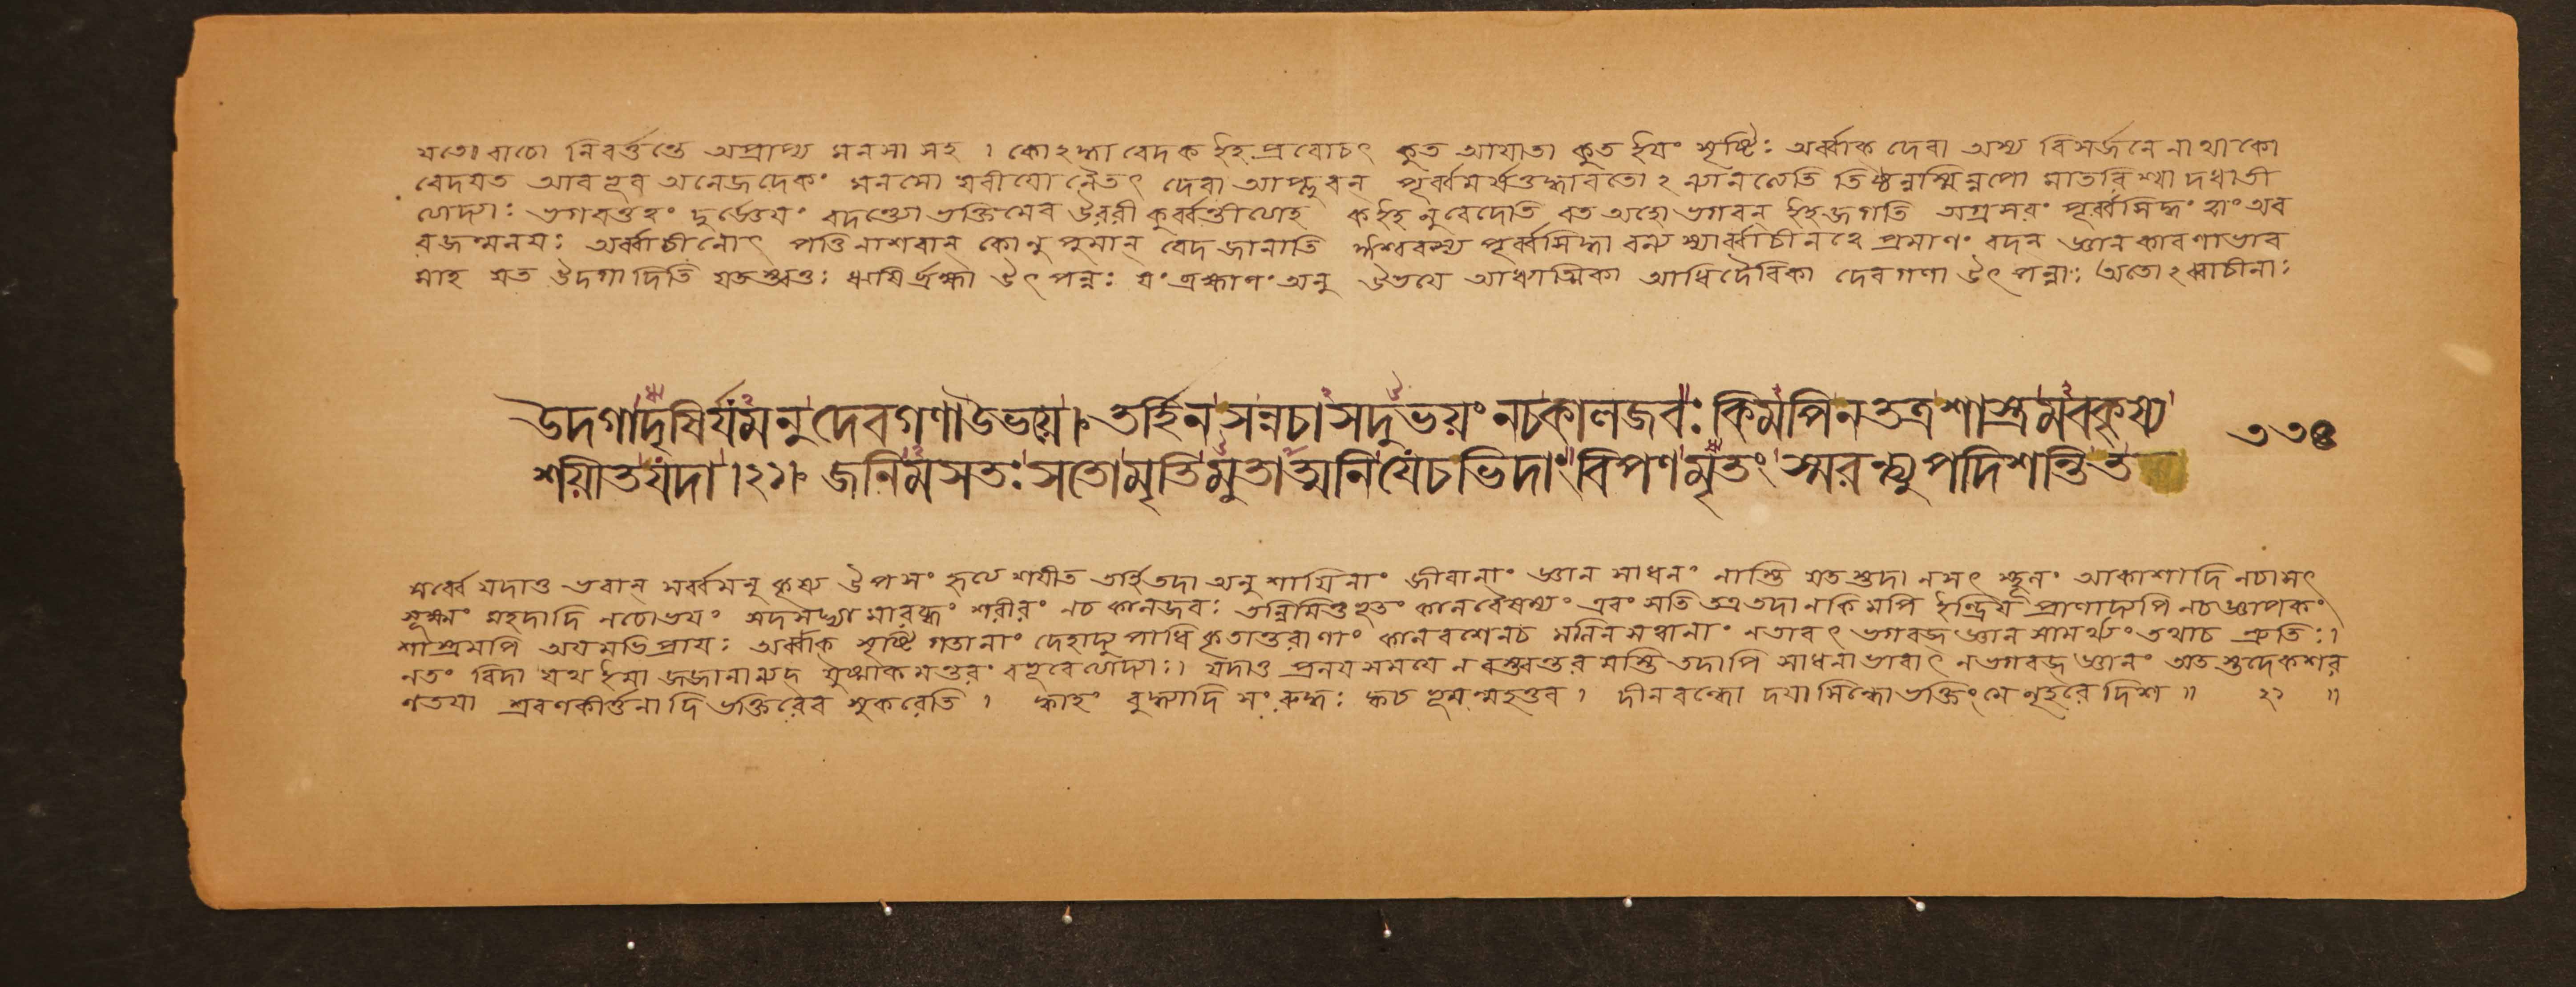 যতো বাচো নিবর্ত্তন্তে অপ্রাপ্য মনসা সহ । কোঽদ্ধা বেদ ক ইহ প্রবোচৎ কুত আযাতা কুত ইযং সৃষ্টিঃ অর্ব্বাক দেবা অস্য বিসর্জনে নাথাকো
বেদযত আবভূব অনেজদেকং মনসো যবীযো নৈতৎ দেবা আপ্নুবন পূর্ব্বমর্ষত্তদ্ধাবতোঽন্যানত্যেতি তিষ্ঠত্তস্মিন্নপো মাতরিশ্বা দধাতী
ত্যেদ্যাঃ ভগবত্তত্বং দুর্জ্ঞেযং বদন্ত্যো ভক্তিমেব উররী কুর্ব্বন্তীত্যাহ ক ইহ নু বেদেতি বত অহো ভগবন ইহ জগতি অগ্রসরং পূর্ব্বসিদ্ধং ত্বাং অব
বজন্মলযঃ অর্ব্বাচীনোৎপত্তি নাশবান কো নু পুমান বেদ জানাতি ঈশ্বরস্য পূর্ব্বসিদ্ধা বন্য স্যার্ব্বাচীনত্বে প্রমাণং বদন জ্ঞান কারণাভাব
মাহ যত উদগাদিতি যতস্ত্বত্তঃ ঋষির্ব্রহ্মা উৎপন্নঃ যং ব্রহ্মাণং অনু উভযে আধ্যাত্মিকা আধিদৈবিকা দেবগণা উৎপন্নাঃ অতোঽর্ব্বাচীনাঃ
উদগাদৃষির্যমনু দেবগণা উভয়ে । তর্হি ন সন্নচাসদুভয়ং নচ কালজবঃ কিমপি ন তত্র শাস্ত্রমবকৃষ্য
শয়ীত যদা । ২১ । জনিমসতঃ সতো মৃতিমুতাত্মনি যেচ ভিদাং বিপণমৃতং স্মরন্ত্যুপদিশন্তি ত
৩৩৪
সর্ব্বে যদাও ভবান সর্ব্বমনু কৃষ্য উপসংহৃত্য শযীত তর্হি তদা অনুশাযিনাং জীবানাং জ্ঞান সাধনং নাস্তি যতস্তদা ন সৎ স্থূলং আকাশাদি নচাসৎ
সূক্ষ্মং মহদাদি নচোভযং সদসদ্ভ্যা মারব্ধং শরীরং নচ কালজবঃ তন্নিমিত্তভূতং কালবৈষম্যং এবং সতি তত্র তদা ন কিমপি ইন্দ্রিয প্রাণাদ্যপি নচ জ্ঞাপকং
শাস্ত্রমপি অযমভিপ্রাযঃ অর্ব্বাক সৃষ্টি গতানাং দেহাদ্যুপাধি কৃতান্তরাণাং কালবশেনচ মলিনসত্বানাং ন তাবৎ ভগবজ্ জ্ঞান সামর্থ্যং তথাচ শ্রুতিঃ ।
ন তং বিদা যথ ইমা জজানান্যদ যুষ্মাক মন্তরং বভূবেত্যেদ্যাঃ । যদাও প্রলযসমযে ন বস্ত্বন্তর মস্তি তদাপি সাধনাভাবাৎ ন ভগবজ্ জ্ঞানং অত স্ত্বদেকশর
ণতযা শ্রবণকীর্ত্তনাদি ভক্তিরেব সুকরেতি । ক্বাহং বুদ্ধ্যাদি সংরুদ্ধঃ ক্বচ ভূমন্মহস্তব । দীনবন্ধো দযাসিন্ধো ভক্তিং মে নৃহরে দিশ ॥ ২১ ॥